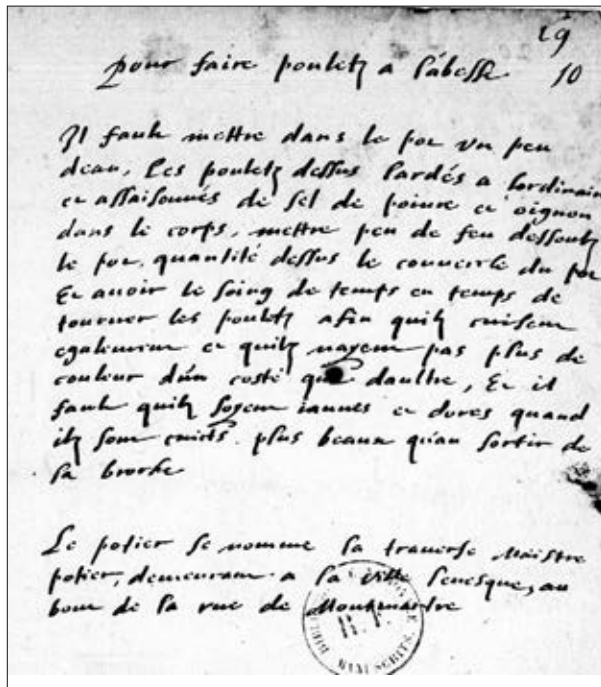 29
pour faire pouletz a labesse 10
Il fault mettre dans le pot un peu
deau, Les pouletz dessus lardés a lordinaire
et assaisonnés de sel de poivre et oignon
dans le corps, mettre peu de feu dessoubz
le pot, quantité dessus le couvercle du pot
Et avoir le soing de temps en temps de
tourner les pouletz afin quilz cuisent
egalement et quilz nayent pas plus de
couleur dun costé que daultre, Et il
fault quilz soyent iaunes et dorés quand
ilz sont cuits. plus beaux quau sortir de
la broche
Le potier se nomme la traverse Maistre
potier, demeurant a la ville levesque, au
bout de la rue de Montmartre
MANUSCRITS